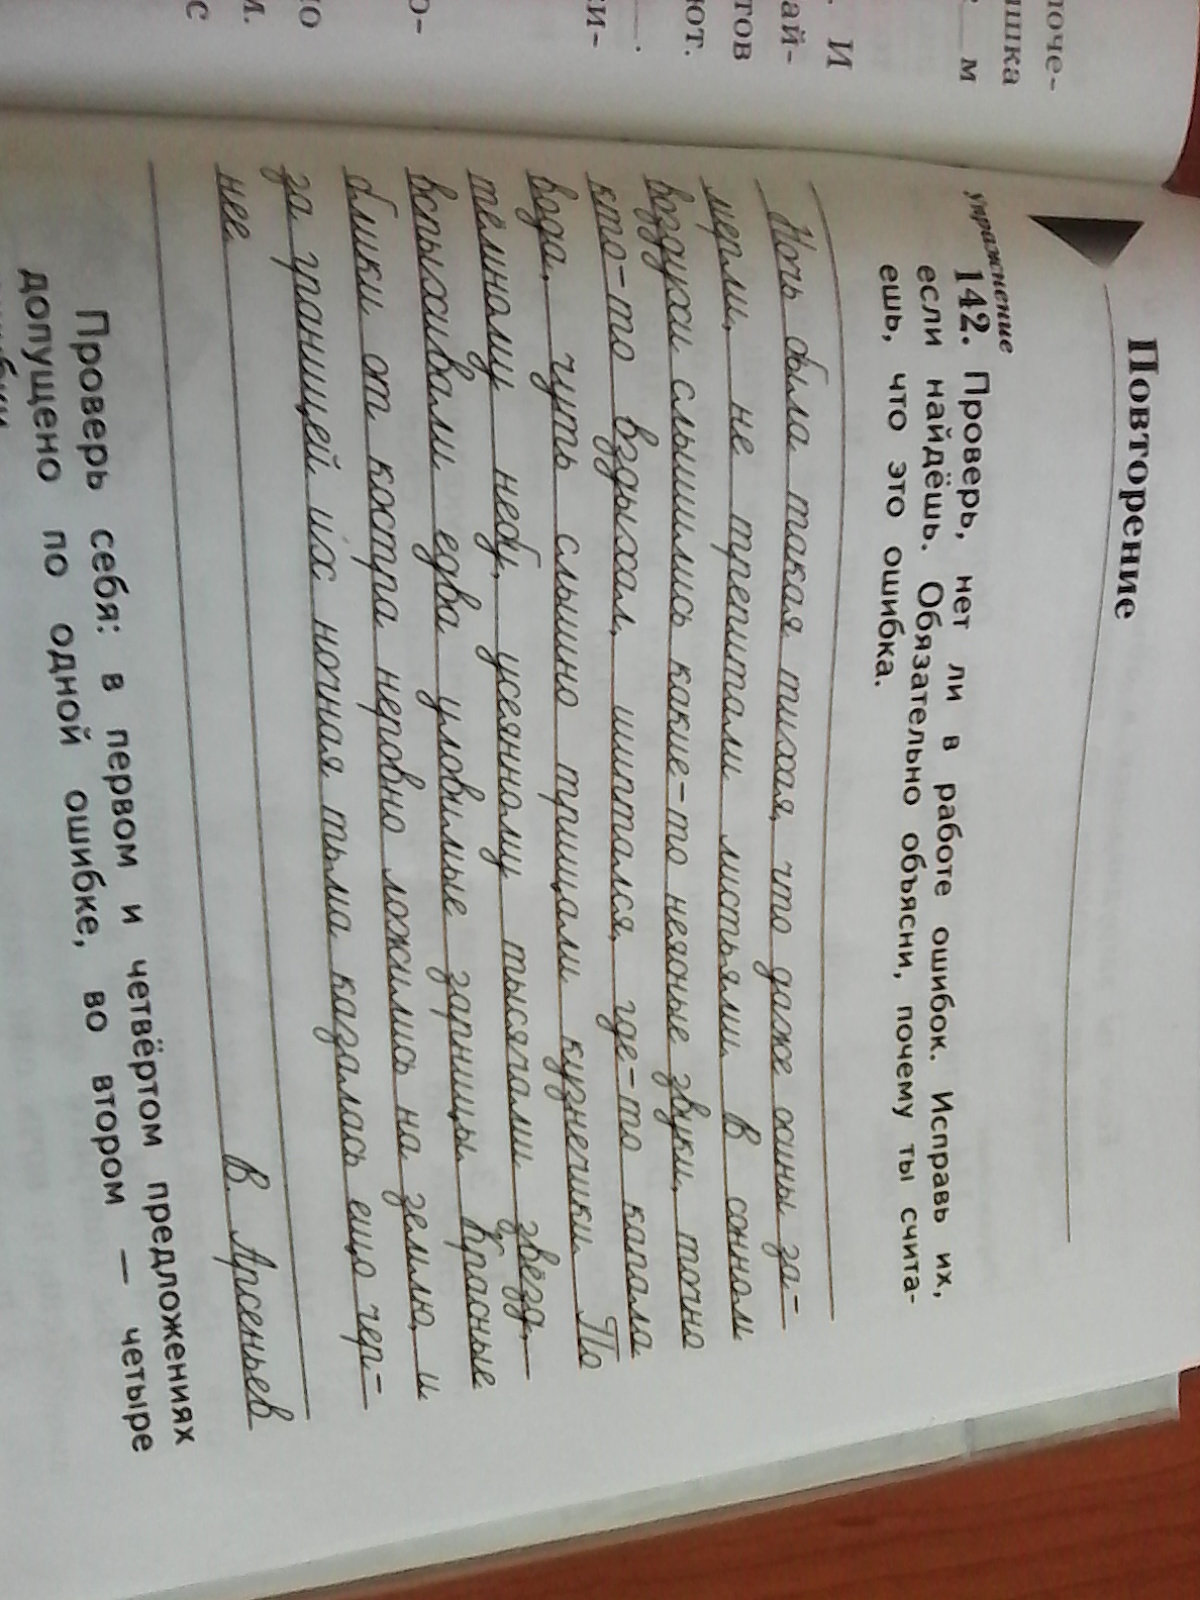 Повторение
упражнение
142. Проверь, нет ли в работе ошибок. Исправь их,
если найдёшь. Обязательно объясни, почему ты счита-
ешь, что это ошибка.
Ночь была такая тихая, что даже осины за-
мерли, не трепитали листьями. В сонном
воздухи слышились какие-то неясные звуки, точно
кто-то вздыхал, шиптался, где-то капала
вода, чуть слышно трищали кузнечики. По
тёмному небу, усеянному тысячами звёзд,
вспыхивали едва уловимые зарницы. Красные
блики от костра неровно ложились на землю, и
за границей их ночная тьма казалась ещо чер-
нее.
В. Арсеньев
Проверь себя: в первом и четвёртом предложениях
допущено по одной ошибке, во втором — четыре